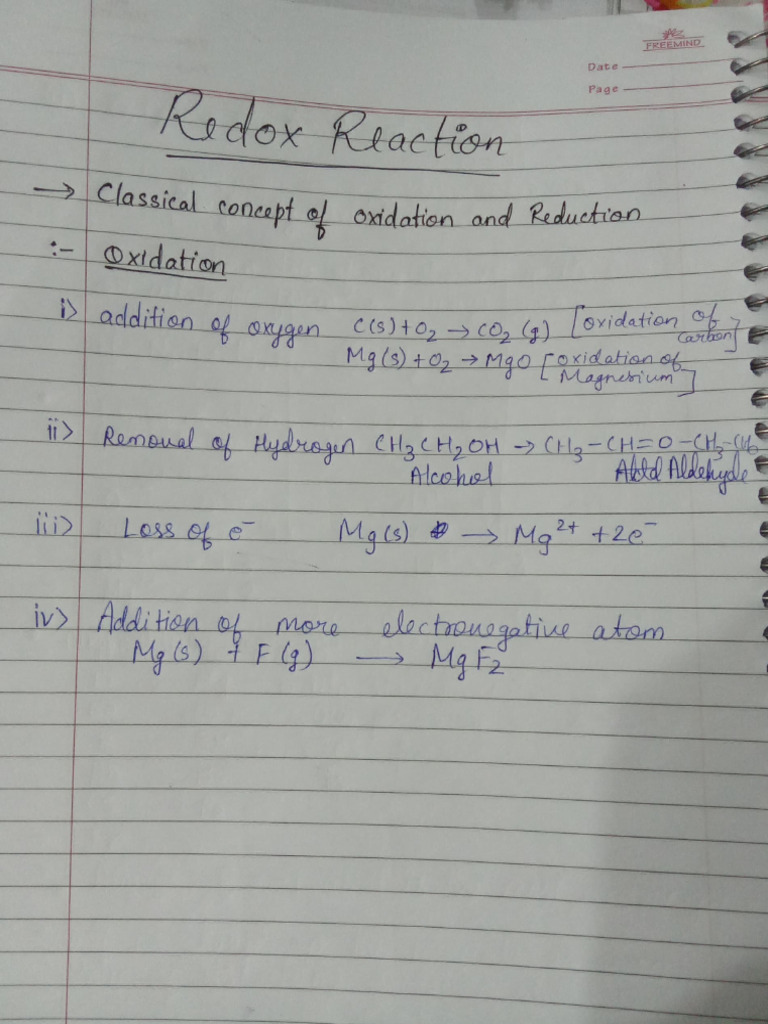 FREEMIND
Date
Page
Redox Reaction
→ Classical concept of oxidation and Reduction
:- Oxidation
i> addition of oxygen C(s) + O2 → CO2 (g) [oxidation of Carbon]
Mg(s) + O2 → MgO [oxidation of Magnesium]
ii> Removal of Hydrogen CH3CH2OH → CH3-CH=O-CH3-
Alcohol Aldehyde
iii> Loss of e⁻ Mg(s) → Mg²⁺ + 2e⁻
iv> Addition of more electronegative atom
Mg(s) + F(g) → MgF2